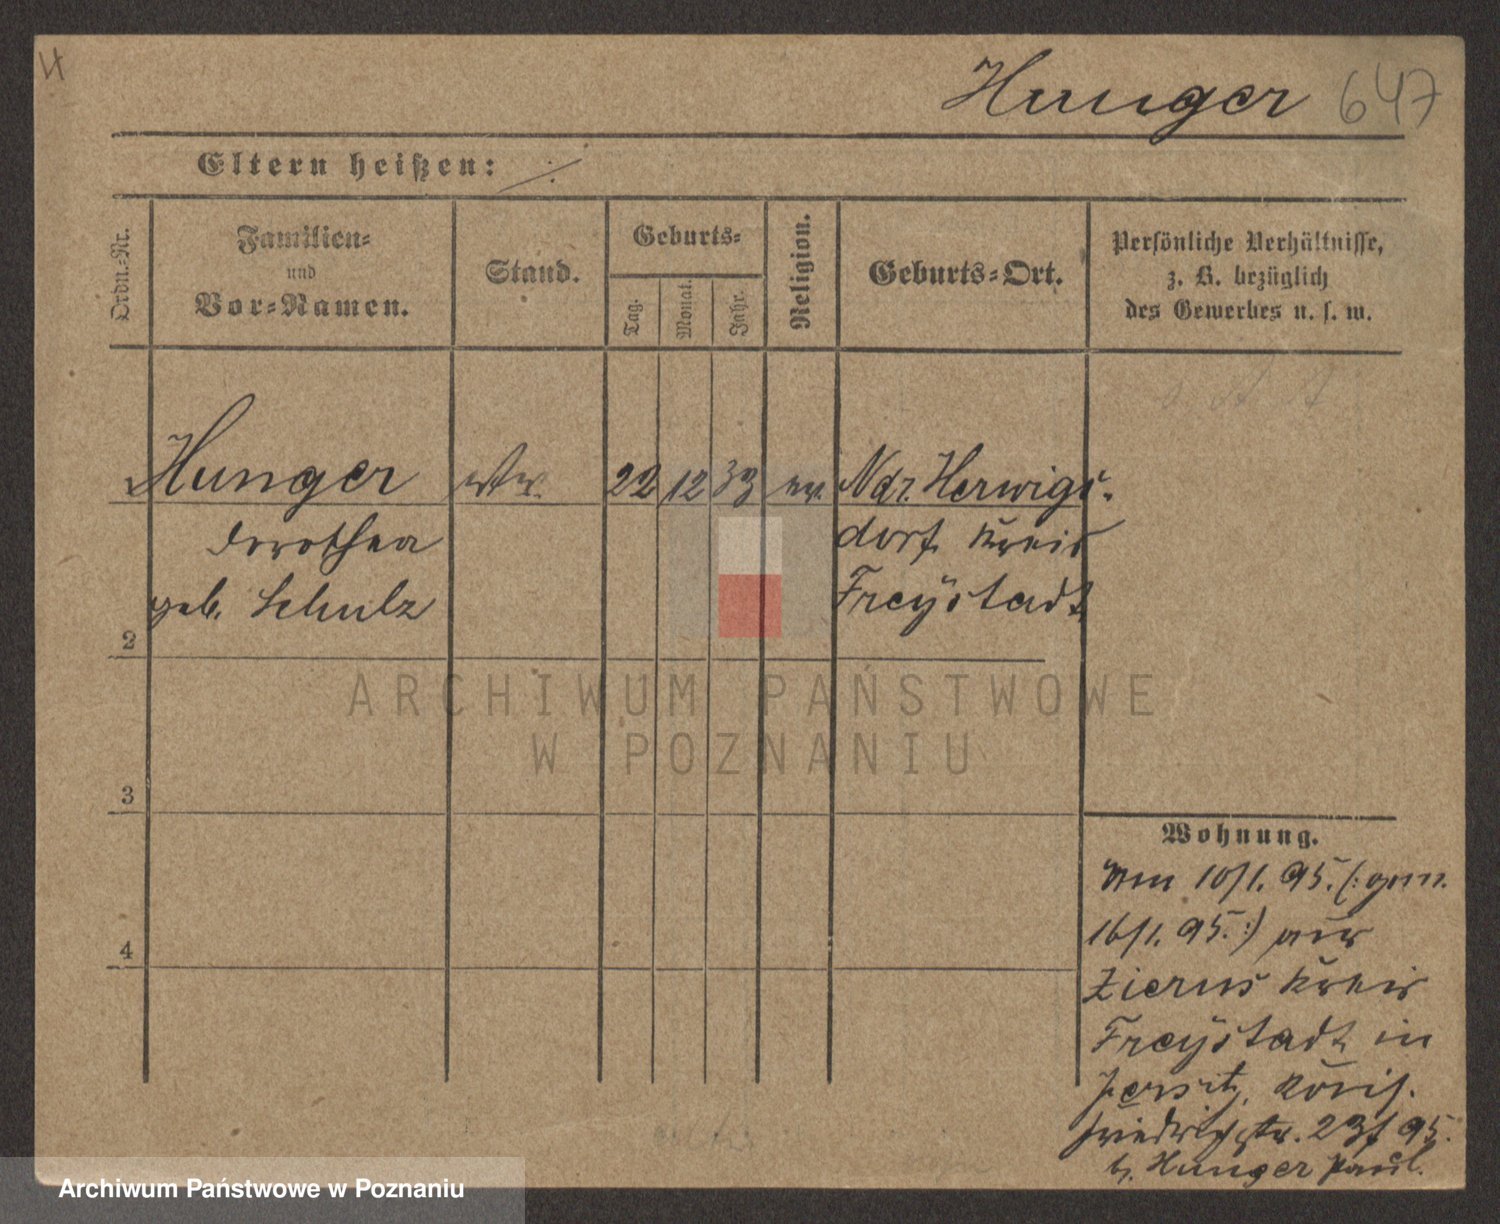 H
Hunger 647
Eltern heißen: ./.
Ordn.-Nr.
Familien-
und
Vor-Namen.
Stand.
Geburts-
Tag.
Monat.
Jahr.
Religion.
Geburts-Ort.
Persönliche Verhältnisse,
z. B. bezüglich
des Gewerbes u. s. w.
1 Hunger Ww. 22 12 33 ev. Ndr. Herwigs-
Dorothea dorf, Kreis
geb. Schulz Freystadt
2
3
4
Wohnung.
Am 10/1. 95. (: gem.
16/1. 95. :) aus
Zierus Kreis
Freystadt in
Jersitz,
Friedrichstr. 23 f 95.
b. Hunger Paul.
ARCHIWUM PAŃSTWOWE
W POZNANIU
Archiwum Państwowe w Poznaniu